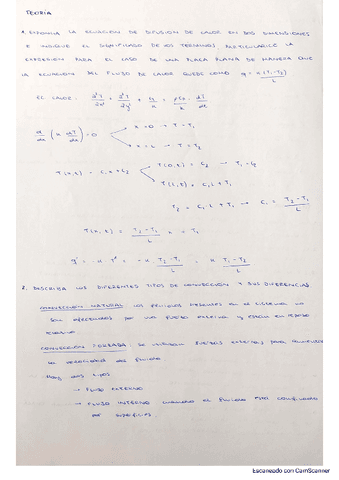 TEORIA
1. EXPONGA LA ECUACION DE DIFUSION DE CALOR EN DOS DIMENSIONES
E INDIQUE EL SIGNIFICADO DE LOS TERMINOS. PARTICULARICE LA
EXPRESION PARA EL CASO DE UNA PLACA PLANA DE MANERA QUE
LA ECUACION DEL FLUJO DE CALOR QUEDE COMO q = k (T1-T2) / L
EC CALOR:
d/dx (k dT/dx) = 0
x = 0 → T = T1
x = L → T = T2
T(x,t) = C1 x + C2
T(0,t) = C2 → T1 = C2
T(L,t) = C1 L + T1
T2 = C1 L + T1 → C1 = (T2 - T1) / L
T(x,t) = (T2 - T1) / L x + T1
2. DESCRIBA LOS DIFERENTES TIPOS DE CONVECCION Y SUS DIFERENCIAS
CONVECCION NATURAL: LOS FLUIDOS PRESENTES EN EL SISTEMA NO
SON AFECTADOS POR UNA FUERZA EXTERNA Y ESTAN EN REPOSO
CONVECCION FORZADA: SE UTILIZAN FUERZAS EXTERNAS PARA
LA VELOCIDAD DEL FLUIDO
HAY DOS TIPOS
→ FLUJO EXTERNO
→ FLUJO INTERNO CUANDO EL FLUIDO ESTA CONFINADO
POR SUPERFICIES.
Escaneado con CamScanner